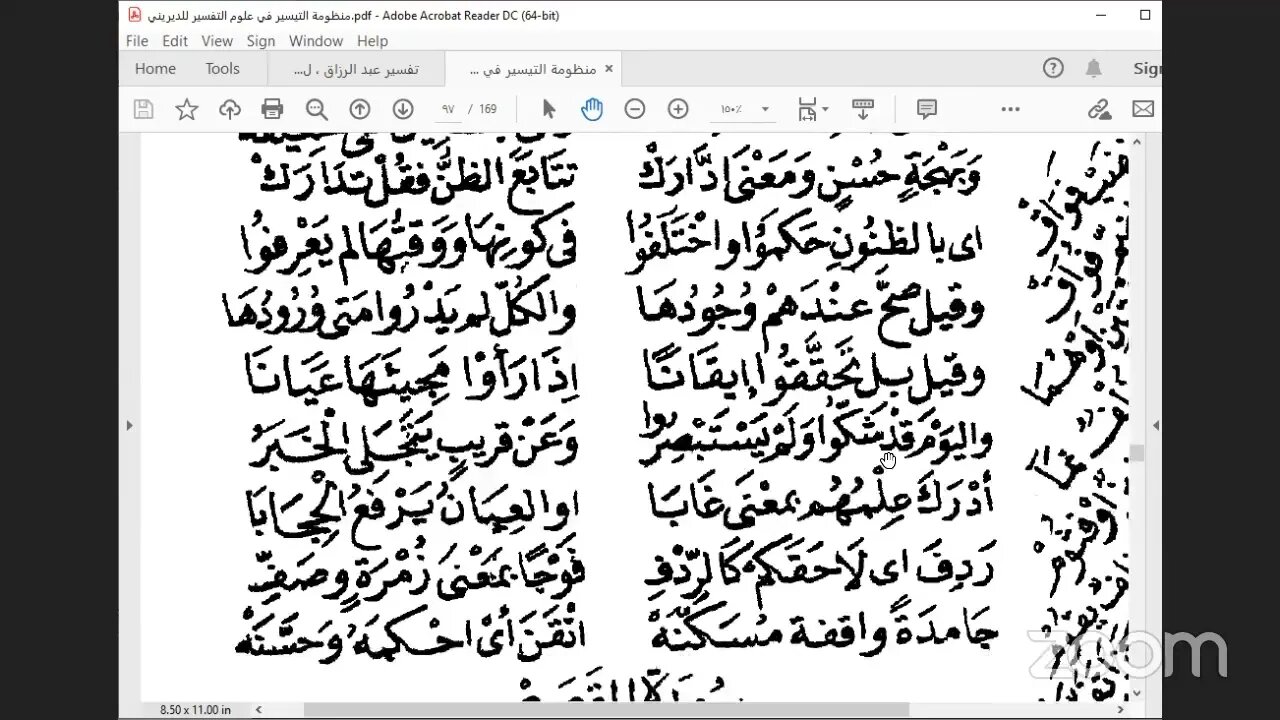 منظومة التيسير في علوم التفسير للديريني.pdf - Adobe Acrobat Reader DC (64-bit)
File Edit View Sign Window Help
Home Tools تفسير عبد الرزاق ، ل... منظومة التيسير في ... ×
٩٧ / 169 ١٥٠٪
وَبَهْجَةٍ حُسْنٍ وَمَعْنَى ادَّارَكْ تتَابَعَ الظنُّ فقُلْ تدَارَكْ
اى بالظنُونِ حَكمَوُا واخْتَلَفُوا فى كونِهَا ووَقتِهَا لم يَعْرِفوُا
وقيل صَحَّ عنْدَهمْ وُجُودُهَا والكُلّ لم يَدْرُوا متى وُرُودُهَا
وقيل بل تَحَقَّقوُا إيقَانًا اِذَا رَأَوْا مَجِيئَهَا عَيَانَا
واليَوْمَ قدْ شَكّوُا وَلَمْ يَسْتَبْصِروا وَعَنْ قرِيبٍ يَنْجَلى الْخَبَرُ
أدْرَكَ عِلْمُهُم بمعْنَى غَابَا او العِيَانُ يَرْفَعُ الْحِجَابَا
رَدِفَ اى لَاحَقَكمْ كَالرِّدْفِ فَوْجًا بمَعْنَى زُمْرَةٍ وصَفِّ
جَامدَةً واقفة مسَكنَّهْ اتْقَنَ أىْ احْكمَهُ وَحَسَّنَهْ
سُورَة القصص
zoom
8.50 x 11.00 in